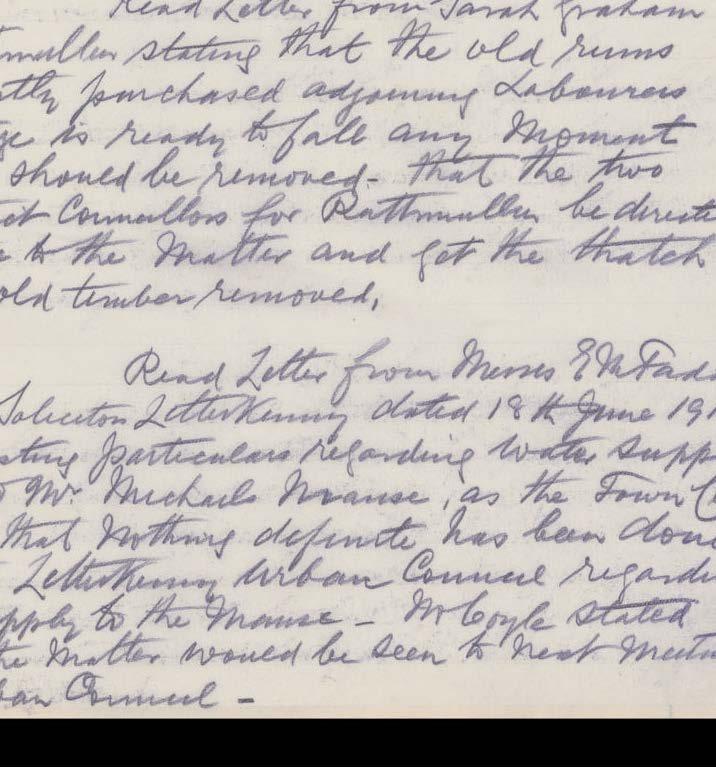 Read Letter from Sarah Graham
mullen stating that the old ruins
tly purchased adjoining Labourers
ge is ready to fall any Moment
should be removed - that the two
ct Councillors for Rathmullen be directe
to the Matter and get the thatch
old timber removed,
Read Letter from Messrs E McFadd
Solicitor Letterkenny dated 18th June 191
sting particulars regarding water supp
Mr. Michaels Manse, as the Town C
that Nothing definite has been done
Letterkenny Urban Council regardi
pply to the Manse - Mr Coyle stated
he Matter would be seen to next Meetin
ban Council -